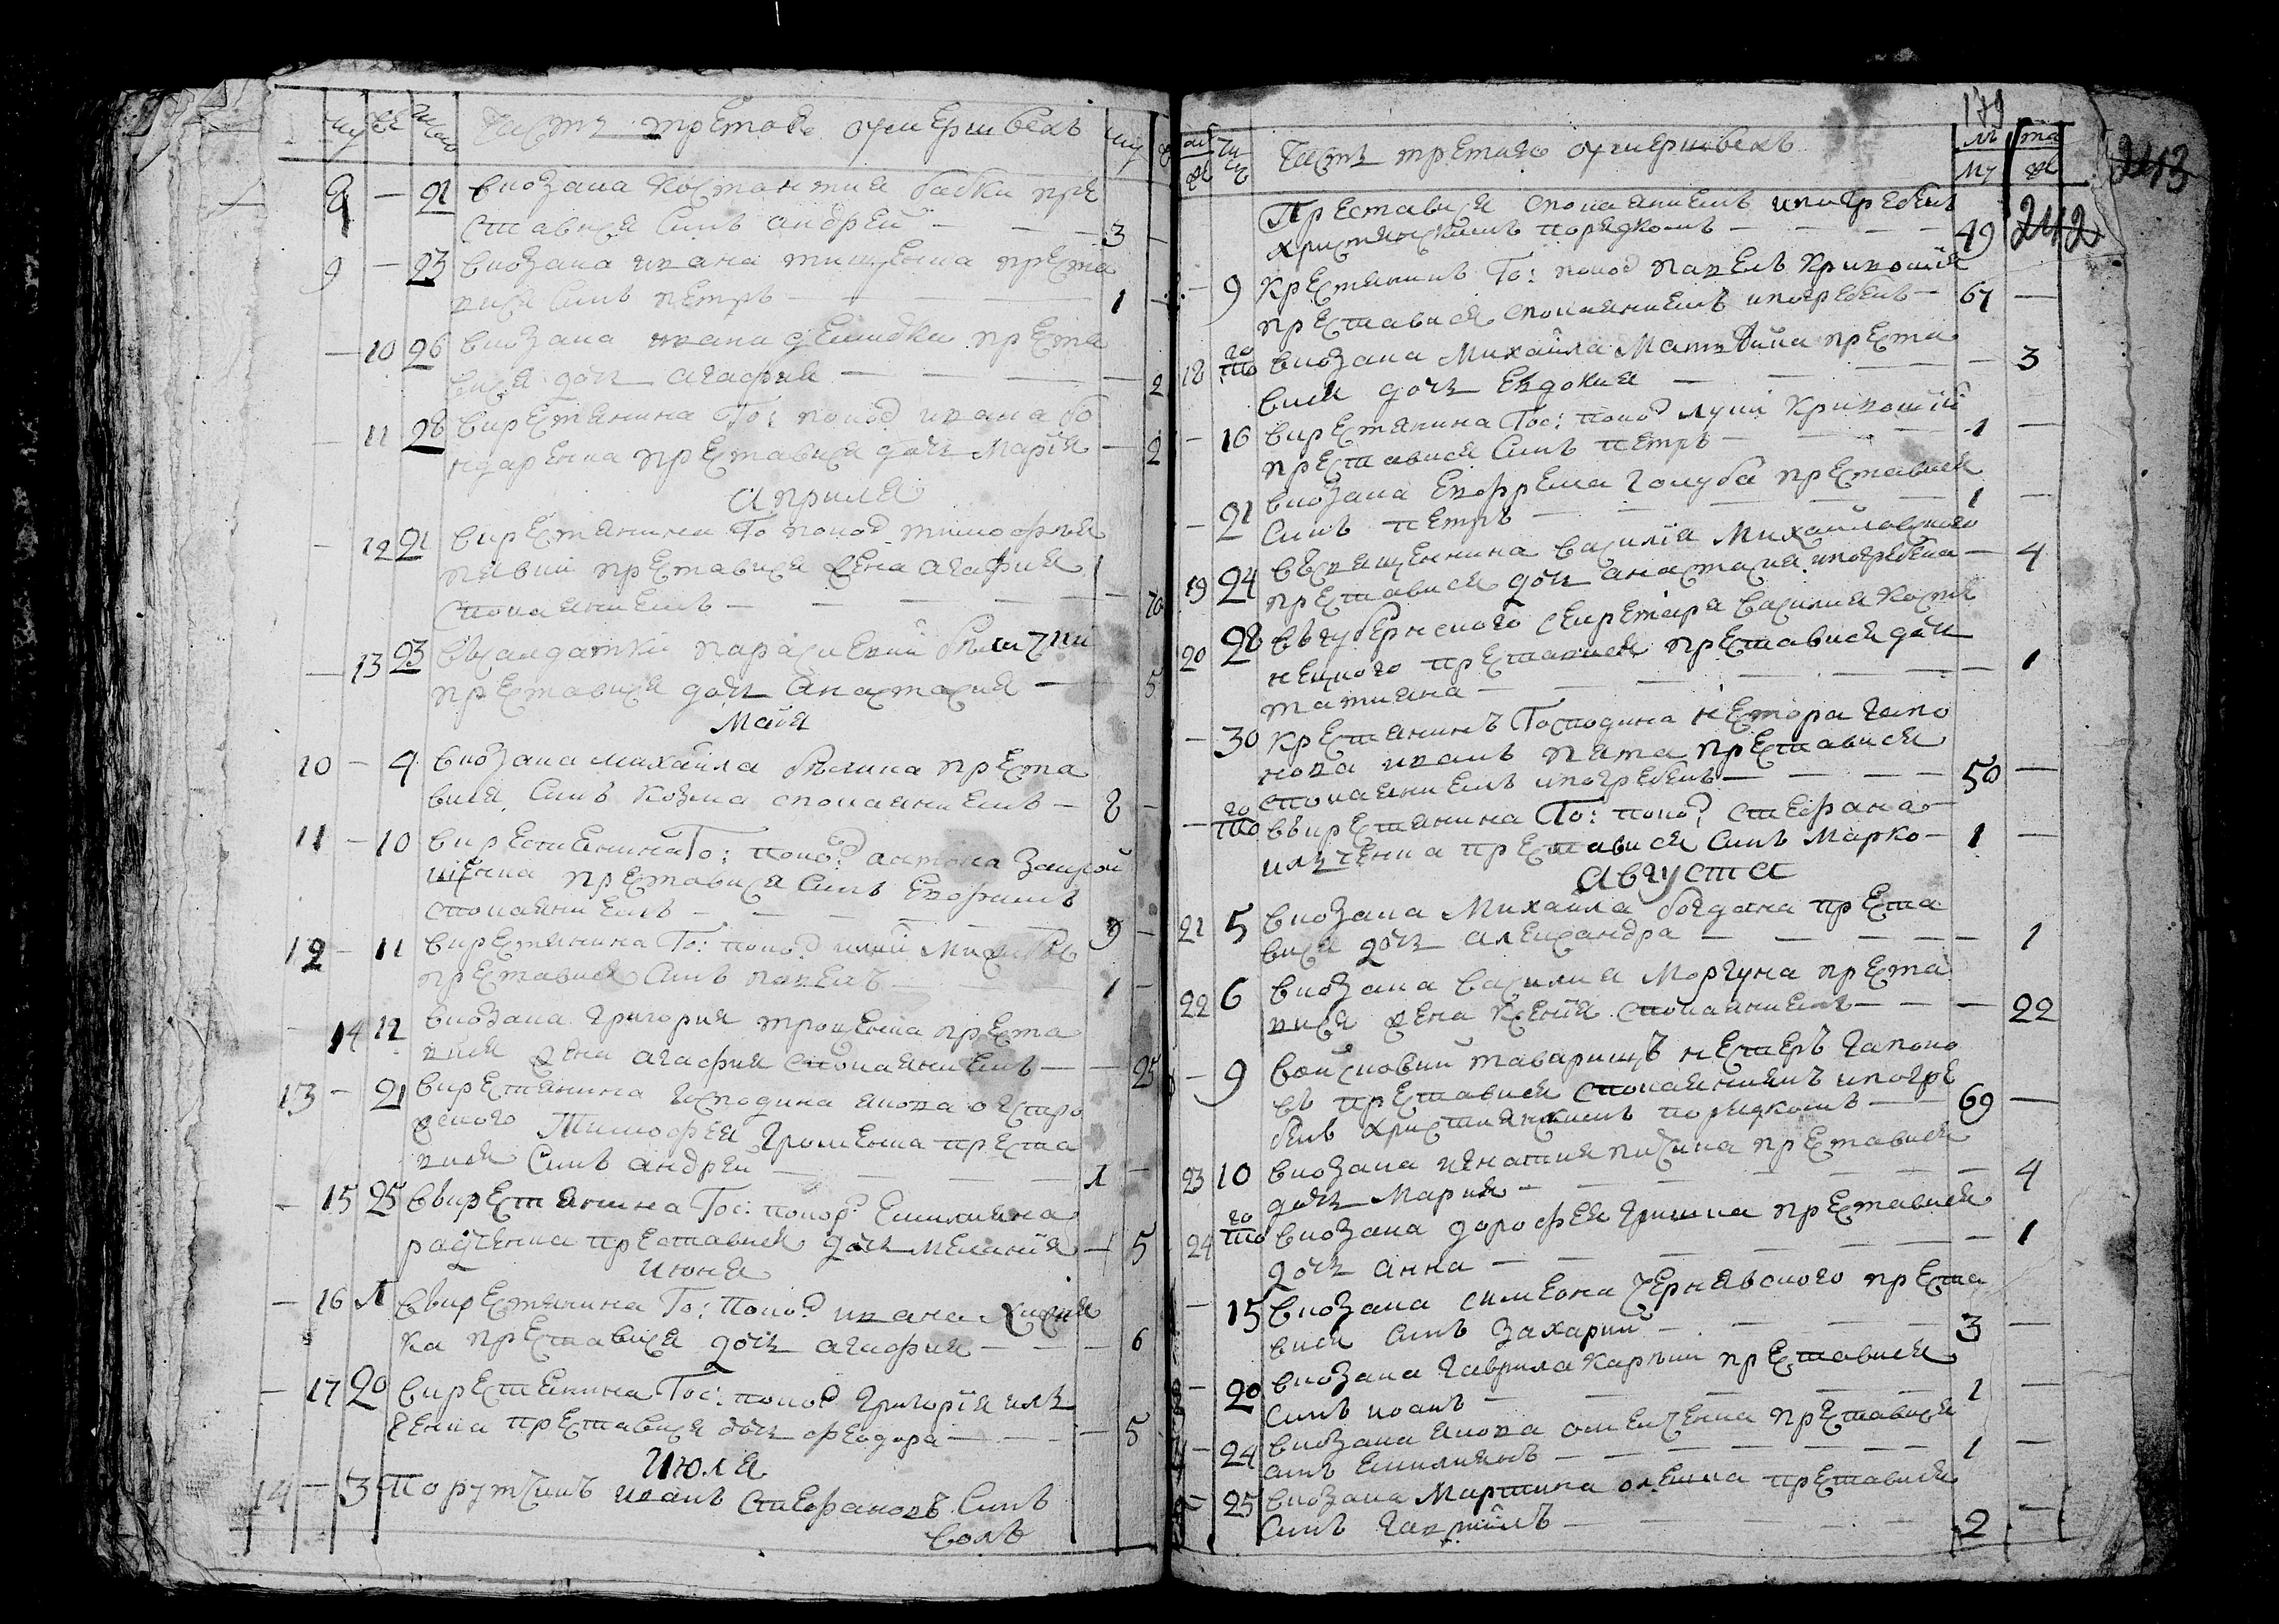 му же число Часть третая о умершвехъ му ж
8 — 21 в козака Костантия бабки пре
ставися синъ андрей — — — 3 —
9 — 23 в козака ивана тищенка преста
вися синъ петръ — — — 1 —
— 10 26 в козака ивана преста
вися дочь агафия — — — 2
— 11 28 в крестянина Го: попод ивана бо
ндаренка преставися дочь Марія — 2
априля
— 12 21 в крестянина Го попод тимофея
преставися жена агафия
с покаяниемъ — — — 70
— 13 23 въ салдатки параскевии
преставися дочь анастасия — 5
Майя
10 — 4 в козака михаила преста
вися синъ козма с покаяниемъ — 8 —
11 — 10 в крестянина Го: попод антона
преставися синъ
с покаяниемъ — — — 9 —
12 — 11 в крестянина Го: попод илии
преставися синъ павелъ — 1 —
— 14 12 в козака григория троценка преста
вися жена агафия с покаяниемъ — — 25
13 — 21 в крестянина господина якова остро
жского Тимофея громенка преста
вися синъ андрей — — 1 —
— 15 25 в крестянина Гос: попод Емилияна
радченка преставися дочь мелания — 5
июня
— 16 1 в крестянина Го: попод ивана
ка преставися дочь агафия — — 6
— 17 20 в крестянина Гос: попод григорія иль
ченка преставися дочь феодора — — 5
Июля
14 — 3 порутчикъ иванъ Стефановъ синъ
179
243
ж число Часть третаго о умершвехъ му ж
242
Преставися с покаяниемъ и погребенъ
християнскимъ порядкомъ — — — 49
— 9 крестянинъ Го: попод павелъ Кривошия
преставися с покаяниемъ и погребенъ — 67 —
18 то го в козака Михаила Матвѣйка преста
вися дочь Евдокия — — — 3
— 16 в крестянина Гос: попод луки Кривошии
преставися синъ петръ — — 1 —
— 21 в козака Евфрема голуба преставися
синъ петръ — — — 1 —
19 24 въ священника василія Михайловского
преставися дочь анастасия и погребена — 4
20 28 въ губернского секретара василия
преставися преставися дочь
татияна — — — 1
— 30 крестянинъ Господина нестора гапо
нова иванъ пята преставися
с покаяниемъ и погребенъ — — 50 —
— то го въ крестянина Го: попод: стефана
илченка преставися синъ Марко — 1 —
августа
21 5 в козака Михаила богдана преста
вися дочь александра — — — 1
22 6 в козака василия Моргуна преста
вися жена ксения с покаяниемъ — — 22
— 9 войсковий таварищъ нестеръ гапоно
въ преставися с покаяниямъ и погре
бенъ християнскимъ порядкомъ — 69 —
23 10 в козака игнатия преставися
дочь Мария — — — 4
24 то го в козака дорофея гришка преставися
дочь анна — — — 1
— 15 в козака симеона чернявского преста
вися синъ захарий — — 3 —
— 20 в козака гаврила преставися
синъ иоанъ — — 1 —
— 24 в козака якова омелченка преставися
синъ Емилиянъ — — 1 —
— 25 в козака Мартина олешка преставися
синъ гавриилъ — — 2 —